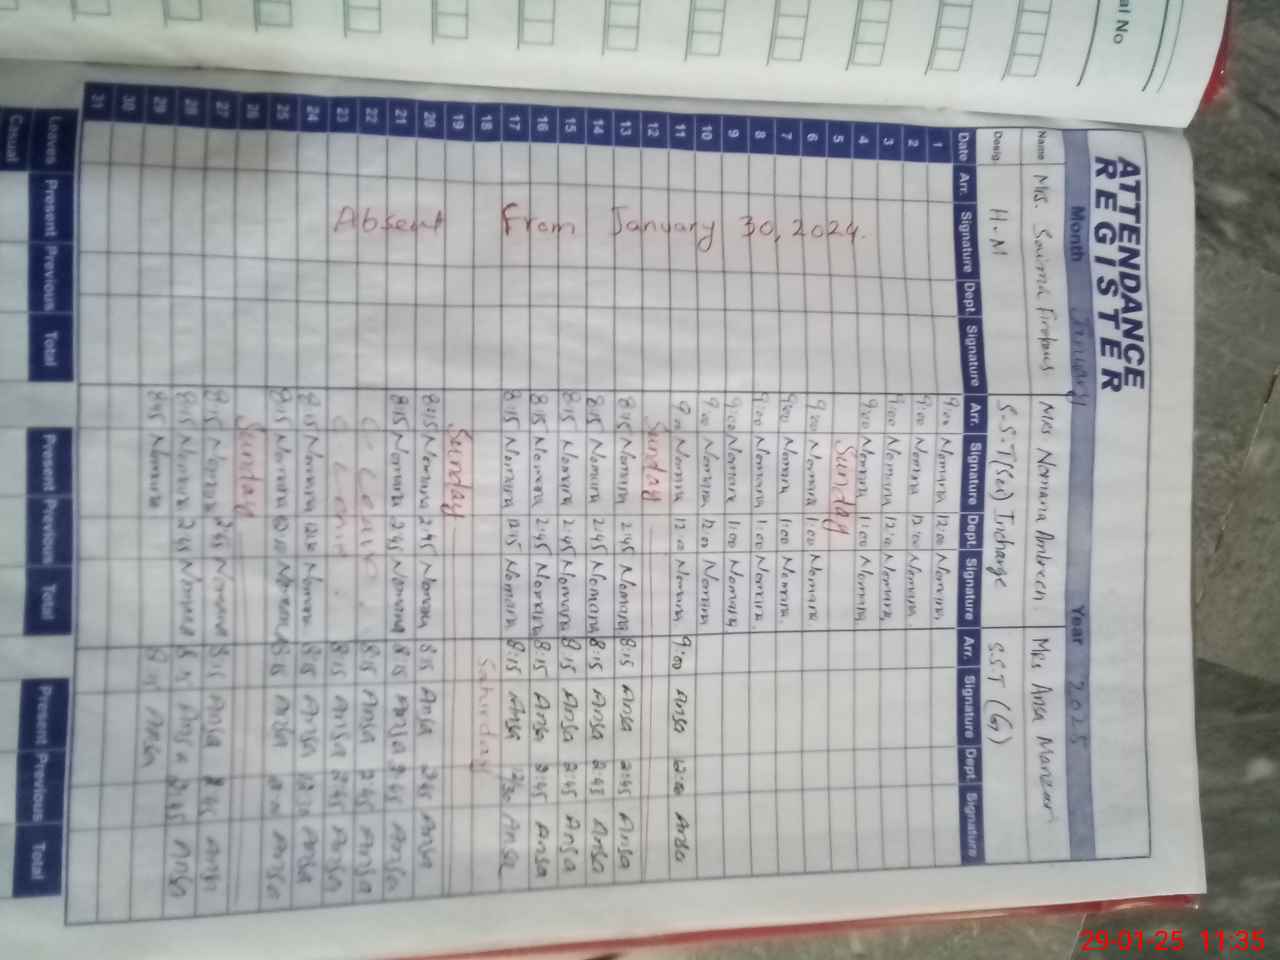 al No
ATTENDANCE
REGISTER
Month January Year 2025
Name Mrs. Saima Firdous Mrs Nomana Ambreen Mrs Ansa Manzoor
Desig. H.M S.S.T(Sci) Incharge S.S.T (G)
Date Arr. Signature Dept. Signature Arr. Signature Dept. Signature Arr. Signature Dept. Signature
Absent From January 30, 2024.
1 9:00 Nomana 12:00 Nomana
2 9:00 Nomana 12:00 Nomana
3 9:00 Nomana 12:00 Nomana
4 9:00 Nomana 11:00 Nomana
5 Sunday
6 9:00 Nomana 1:00 Nomana
7 9:00 Nomana 1:00 Nomana
8 9:00 Nomana 1:00 Nomana
9 9:00 Nomana 1:00 Nomana
10 9:00 Nomana 12:00 Nomana
11 9:00 Nomana 12:00 Nomana 9:00 Ansa 12:00 Ansa
12 Sunday
13 8:15 Nomana 2:45 Nomana 8:15 Ansa 2:45 Ansa
14 8:15 Nomana 2:45 Nomana 8:15 Ansa 2:45 Ansa
15 8:15 Nomana 2:45 Nomana 8:15 Ansa 2:45 Ansa
16 8:15 Nomana 2:45 Nomana 8:15 Ansa 2:45 Ansa
17 8:15 Nomana 12:15 Nomana 8:15 Ansa 12:30 Ansa
18 Saturday
19 Sunday
20 8:15 Nomana 2:45 Nomana 8:15 Ansa 2:45 Ansa
21 8:15 Nomana 2:45 Nomana 8:15 Ansa 2:45 Ansa
22 C Leave 8:15 Ansa 2:45 Ansa
23 C Leave 8:15 Ansa 2:45 Ansa
24 8:15 Nomana Nomana 8:15 Ansa 12:30 Ansa
25 8:15 Nomana Nomana 8:15 Ansa Ansa
26 Sunday
27 8:15 Nomana 2:45 Nomana 8:15 Ansa 2:45 Ansa
28 8:15 Nomana 2:45 Nomana 8:15 Ansa 2:45 Ansa
29 8:15 Nomana 8:15 Ansa
30
31
Leaves Present Previous Total Present Previous Total Present Previous Total
Casual
29-01-25 11:35